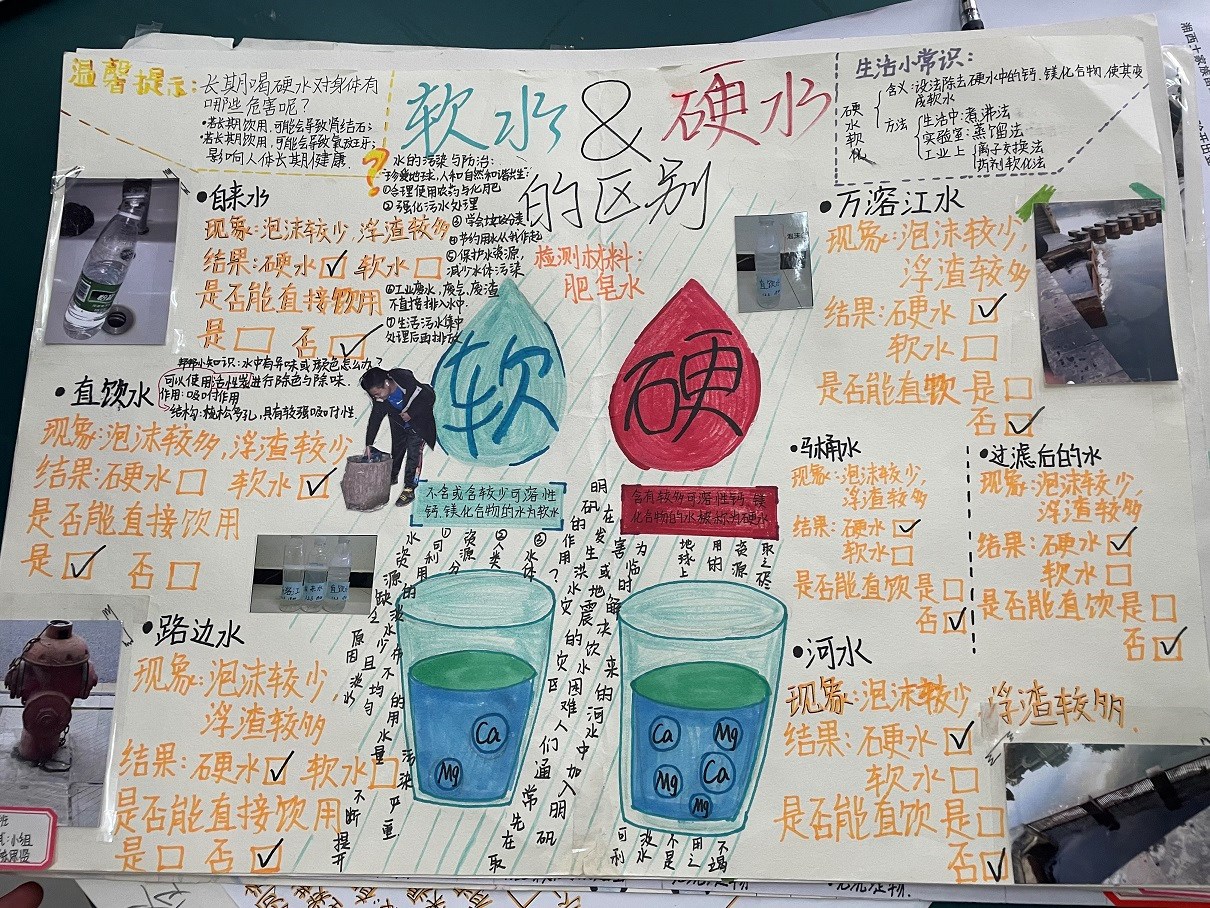 温馨提示:
长其月喝硬水对身体有
哪些危害呢?
•若长期饮用,可能会导致肾结石;
•若长期饮用,可能会导致氟斑牙;
影响人体长期健康.
软水&硬水
的区别
生活小常识:
硬水软化
含义:设法除去硬水中的钙、镁化合物,使其变
成软水
方法
生活中:煮沸法
实验室:蒸馏法
工业上
离子交换法
药剂软化法
水的污染与防治:
珍爱地球,人和自然和谐共生:
①合理使用农药与化肥
②强化污水处理
③学会垃圾分类
④节约用水从我作起
⑤保护水资源,
减少水体污染
⑥工业废水,废气,废渣
不直接排入水中.
⑦生活污水集中
处理后再排放
检测材料:
肥皂水
•自来水
现象:泡沫较少,浮渣较多
结果:硬水☑ 软水☐
是否能直接饮用
是☐ 否☑
小知识:水中有异味或颜色怎么办?
可以使用活性炭进行除色与除味.
作用:吸附作用
结构:疏松多孔,具有较强吸附性
•直饮水
现象:泡沫较多,浮渣较少
结果:硬水☐ 软水☑
是否能直接饮用
是☑ 否☐
•路边水
现象:泡沫较少,
浮渣较多
结果:硬水☑ 软水☐
是否能直接饮用
是☐ 否☑
软
硬
不含或含较少可溶性
钙,镁化合物的水为软水
含有较多可溶性钙、镁
化合物的水被称为硬水
Ca
Mg
Ca
Mg
Mg
Ca
Mg
明矾的作用?
在发生洪水或地震灾害的灾区
为临时解决饮水困难人们通常先在取
来的河水中加入明矾
•万溶江水
现象:泡沫较少,
浮渣较多
结果:硬水☑
软水☐
是否能直软 是☐
否☑
•马桶水
现象:泡沫较少,
浮渣较多
结果:硬水☑
软水☐
是否能直饮是☐
否☑
•过滤后的水
现象:泡沫较少,
浮渣较多
结果:硬水☑
软水☐
是否能直饮是☐
否☑
•河水
现象:泡沫较少 浮渣较多.
结果:硬水☑
软水☐
是否能直饮是☐
否☑